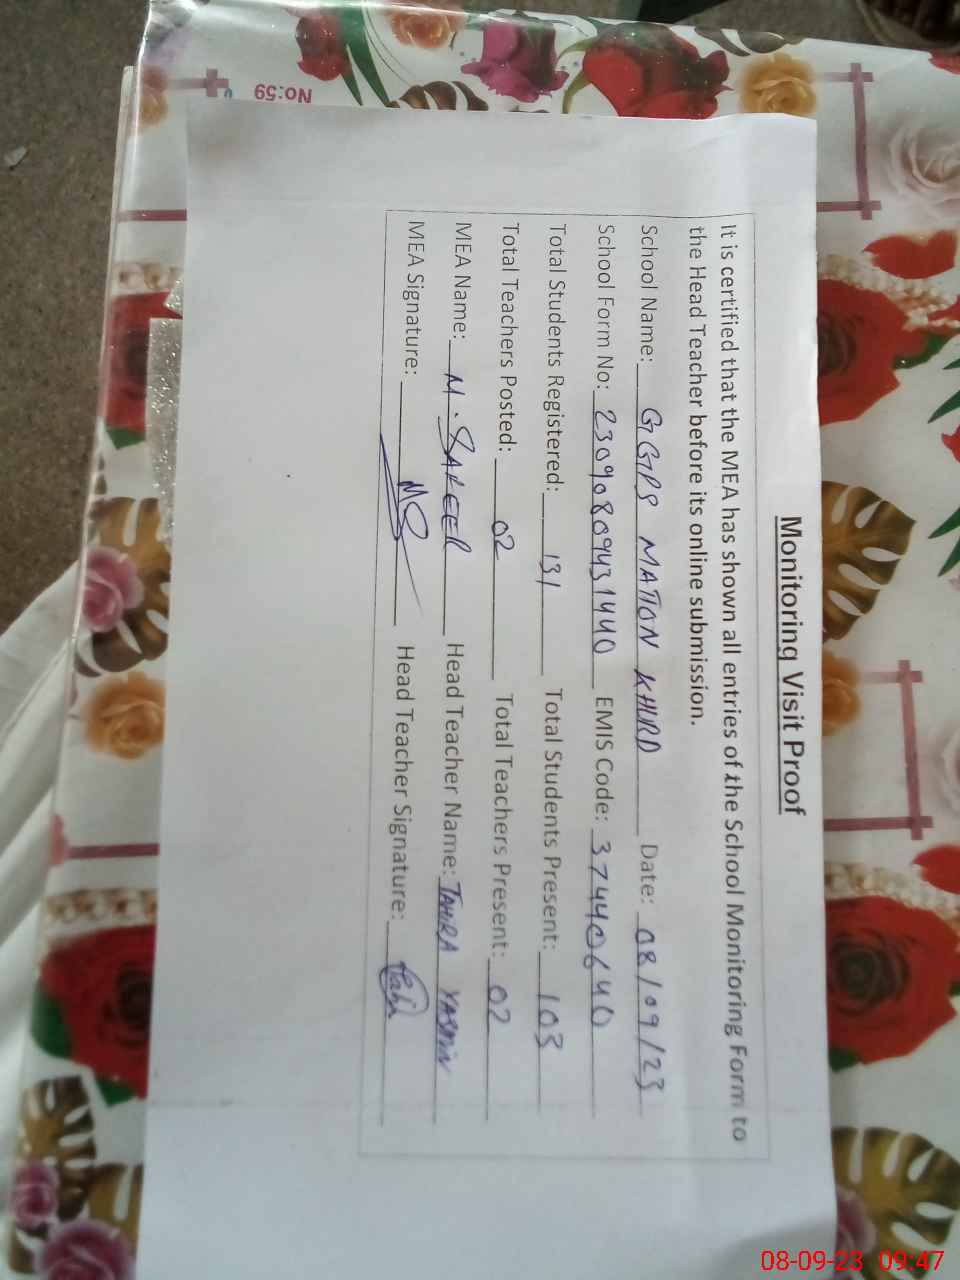 No:59
Monitoring Visit Proof
It is certified that the MEA has shown all entries of the School Monitoring Form to
the Head Teacher before its online submission.
School Name: GGPS MATTON KHURD Date: 08/09/23
School Form No: 23090809431440 EMIS Code: 37440640
Total Students Registered: 131 Total Students Present: 103
Total Teachers Posted: 02 Total Teachers Present: 02
MEA Name: M. SAKEER Head Teacher Name: TAHIRA YASMIN
MEA Signature: MS Head Teacher Signature:
08-09-23 09:47